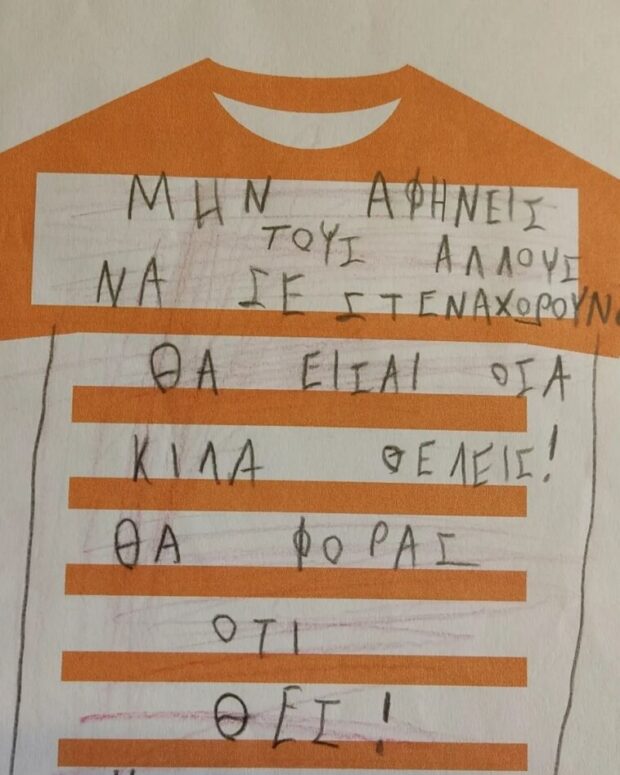 ΜΗΝ ΑΦΗΝΕΙΣ
ΤΟΥΣ ΑΛΛΟΥΣ
ΝΑ ΣΕ ΣΤΕΝΑΧΟΡΟΥΝ.
ΘΑ ΕΙΣΑΙ ΟΣΑ
ΚΙΛΑ ΘΕΛΕΙΣ!
ΘΑ ΦΟΡΑΣ
ΟΤΙ
ΘΕΣ!